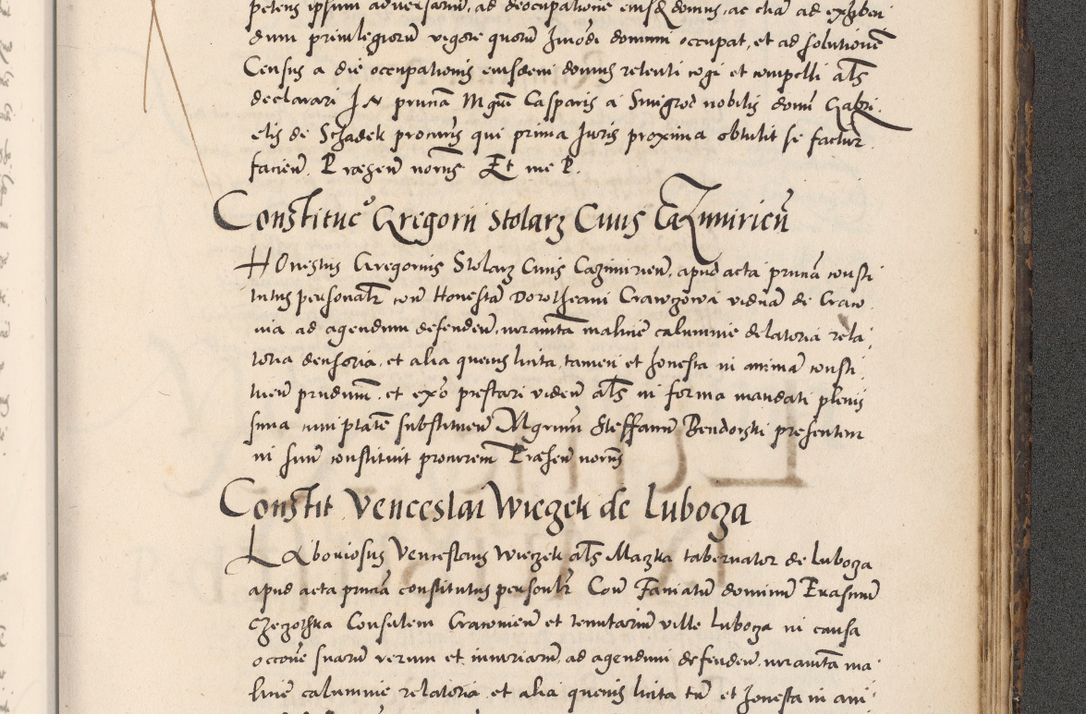 petens ipsum adversarium, ad deocupatione eiusdem domus, ac etiam ad exhiben
dum privilegiorum vigore quorum hmodi domum occupat, et ad solutionem
Census a die occupationis eiusdem domus retenti cogi et compelli als
declarari In pruam Mgrm Casparis a Smigrod nobilis domi Gabri
elis de Schadek procuris qui prima Juris proxima obtulit se factur
facien. Presen notris Et me P.
Constitucio Gregorii Stolarz Civis Cazmiricen
HOnestus Gregorius Stolarz Civis Cazimirien, apud acta pruam consti
tutus personalr con Honestam Dorotheam Crawczowa viduam de Craco
via ad agendum defendend, iuramta malicie calumnie delatoria rela
toria decisoria, et alia quevis licita, tamen et honesta in animam consti
tuen prudum, et exo prestari viden als in forma mandati plenis
sima cum ptate substituen Mgrum Steffanum Bendorski presentem
in suum constituit procurem Presen notris
Constit Venceslai Wiczek de Luboza
LAboriosus Venceslaus Wieczek als Mazka tabernator de Luboza
apud acta pruam constitutus personalr Con Famatum dominum Erasmum
Czeczothka Consulem Cracovien et tenutarium ville Luboza in causa
occone suarum rerum et iniuriarum, ad agendum defenden, iuramta ma
licie calumnie relatoria, et alia quevis licita tn et honesta in ani